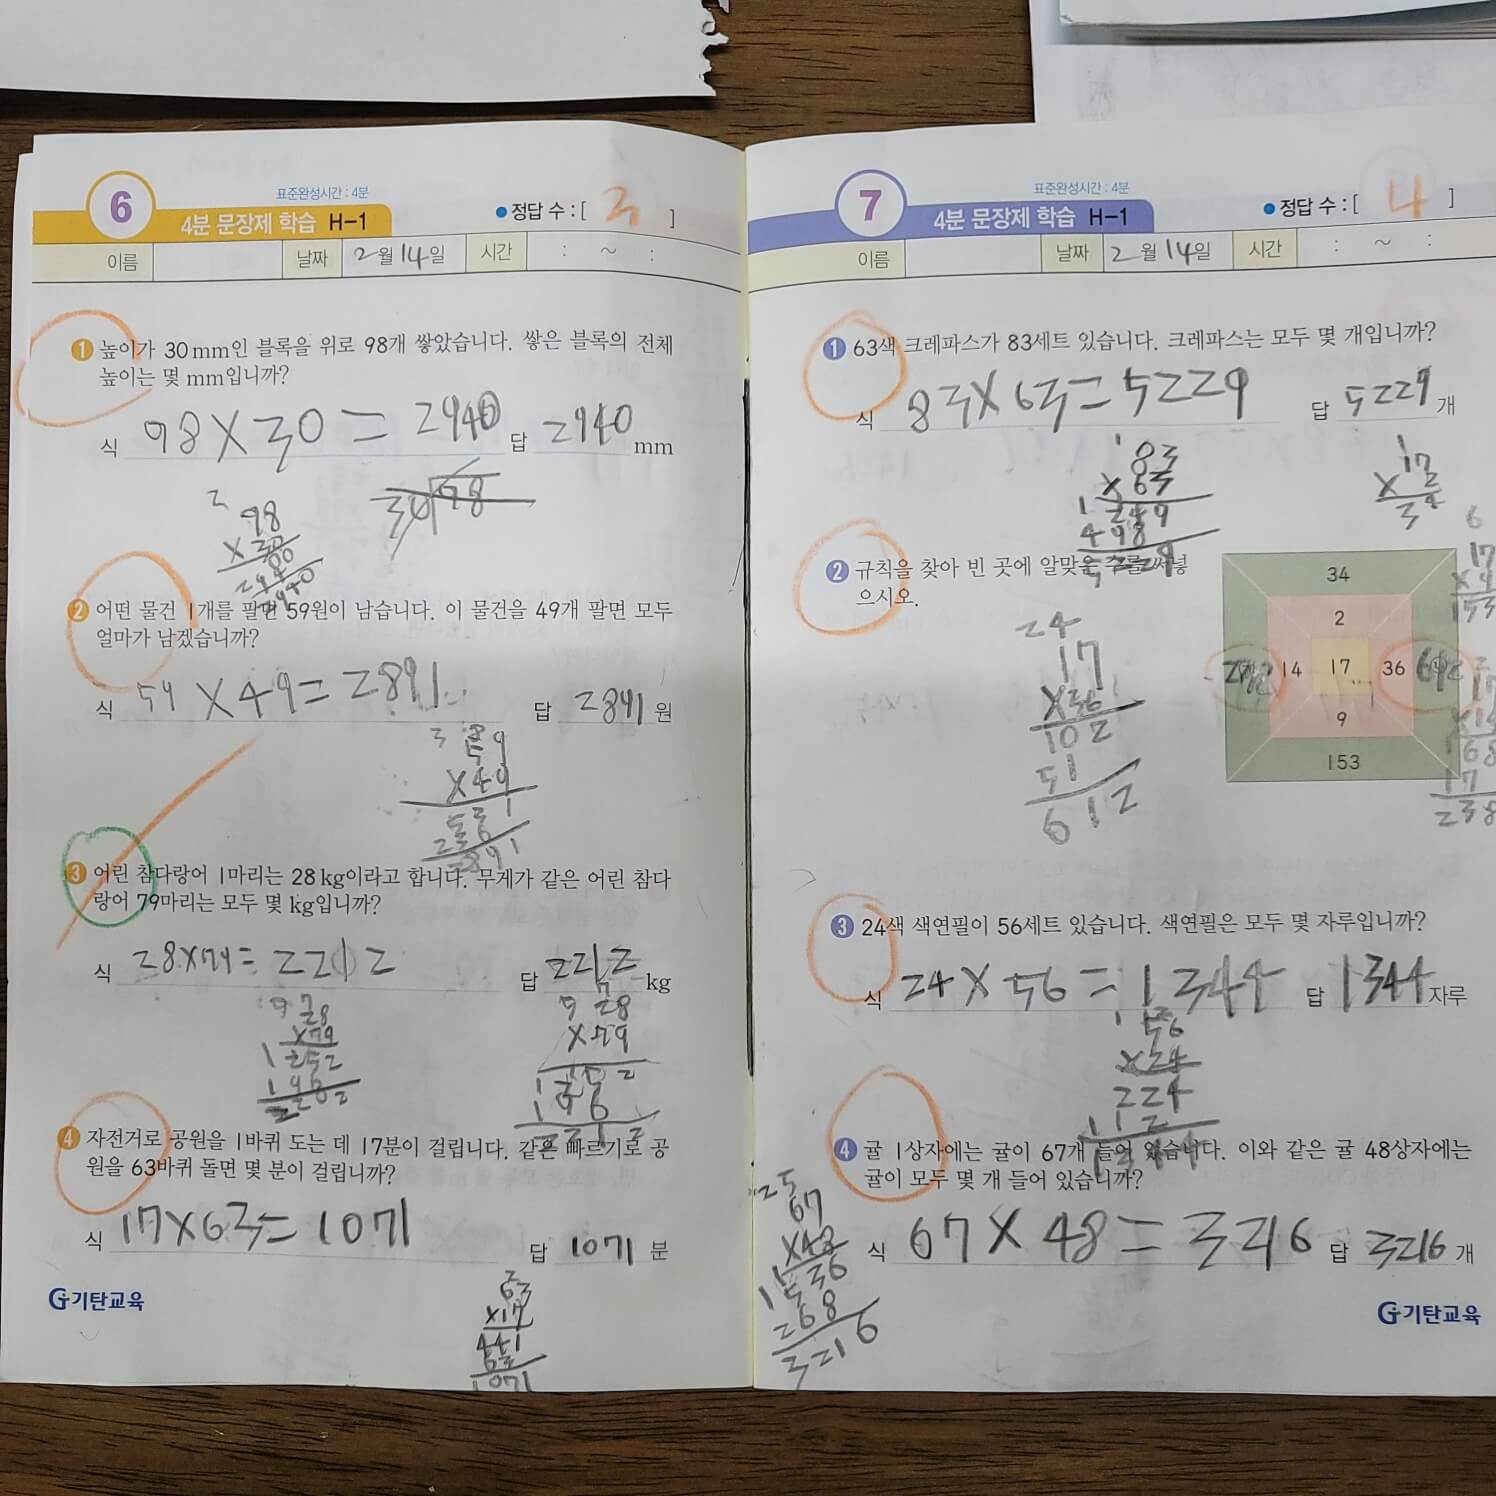 6
표준완성시간 : 4분
4분 문장제 학습 H-1
● 정답 수 : [ 3 ]
이름
날짜 2월 14일
시간 : ~ :
1 높이가 30 mm인 블록을 위로 98개 쌓았습니다. 쌓은 블록의 전체
높이는 몇 mm입니까?
식 98×30=2940 답 2940 mm
98
×30
2940
2 어떤 물건 1개를 팔면 59원이 남습니다. 이 물건을 49개 팔면 모두
얼마가 남겠습니까?
식 59×49=2891 답 2891 원
59
×49
531
236
2891
3 어린 참다랑어 1마리는 28 kg이라고 합니다. 무게가 같은 어린 참다
랑어 79마리는 모두 몇 kg입니까?
식 28×79=2212 답 2212 kg
28
×79
252
196
28
×79
4 자전거로 공원을 1바퀴 도는 데 17분이 걸립니다. 같은 빠르기로 공
원을 63바퀴 돌면 몇 분이 걸립니까?
식 17×63=1071 답 1071 분
63
×17
441
63
1071
G 기탄교육
7
표준완성시간 : 4분
4분 문장제 학습 H-1
● 정답 수 : [ 4 ]
이름
날짜 2월 14일
시간 : ~ :
1 63색 크레파스가 83세트 있습니다. 크레파스는 모두 몇 개입니까?
식 83×63=5229 답 5229 개
83
×63
249
498
5229
17
×2
34
2 규칙을 찾아 빈 곳에 알맞은 수를 써넣
으시오.
34
2
14 17 36
9
153
24
17
×36
102
51
612
17
153
17
68
17
238
3 24색 색연필이 56세트 있습니다. 색연필은 모두 몇 자루입니까?
식 24×56=1344 답 1344 자루
56
×24
224
112
1344
4 귤 1상자에는 귤이 67개 들어 있습니다. 이와 같은 귤 48상자에는
귤이 모두 몇 개 들어 있습니까?
식 67×48=3216 답 3216 개
25
67
×48
536
268
3216
G 기탄교육